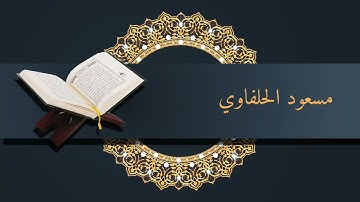 مسعود الحلفاوي